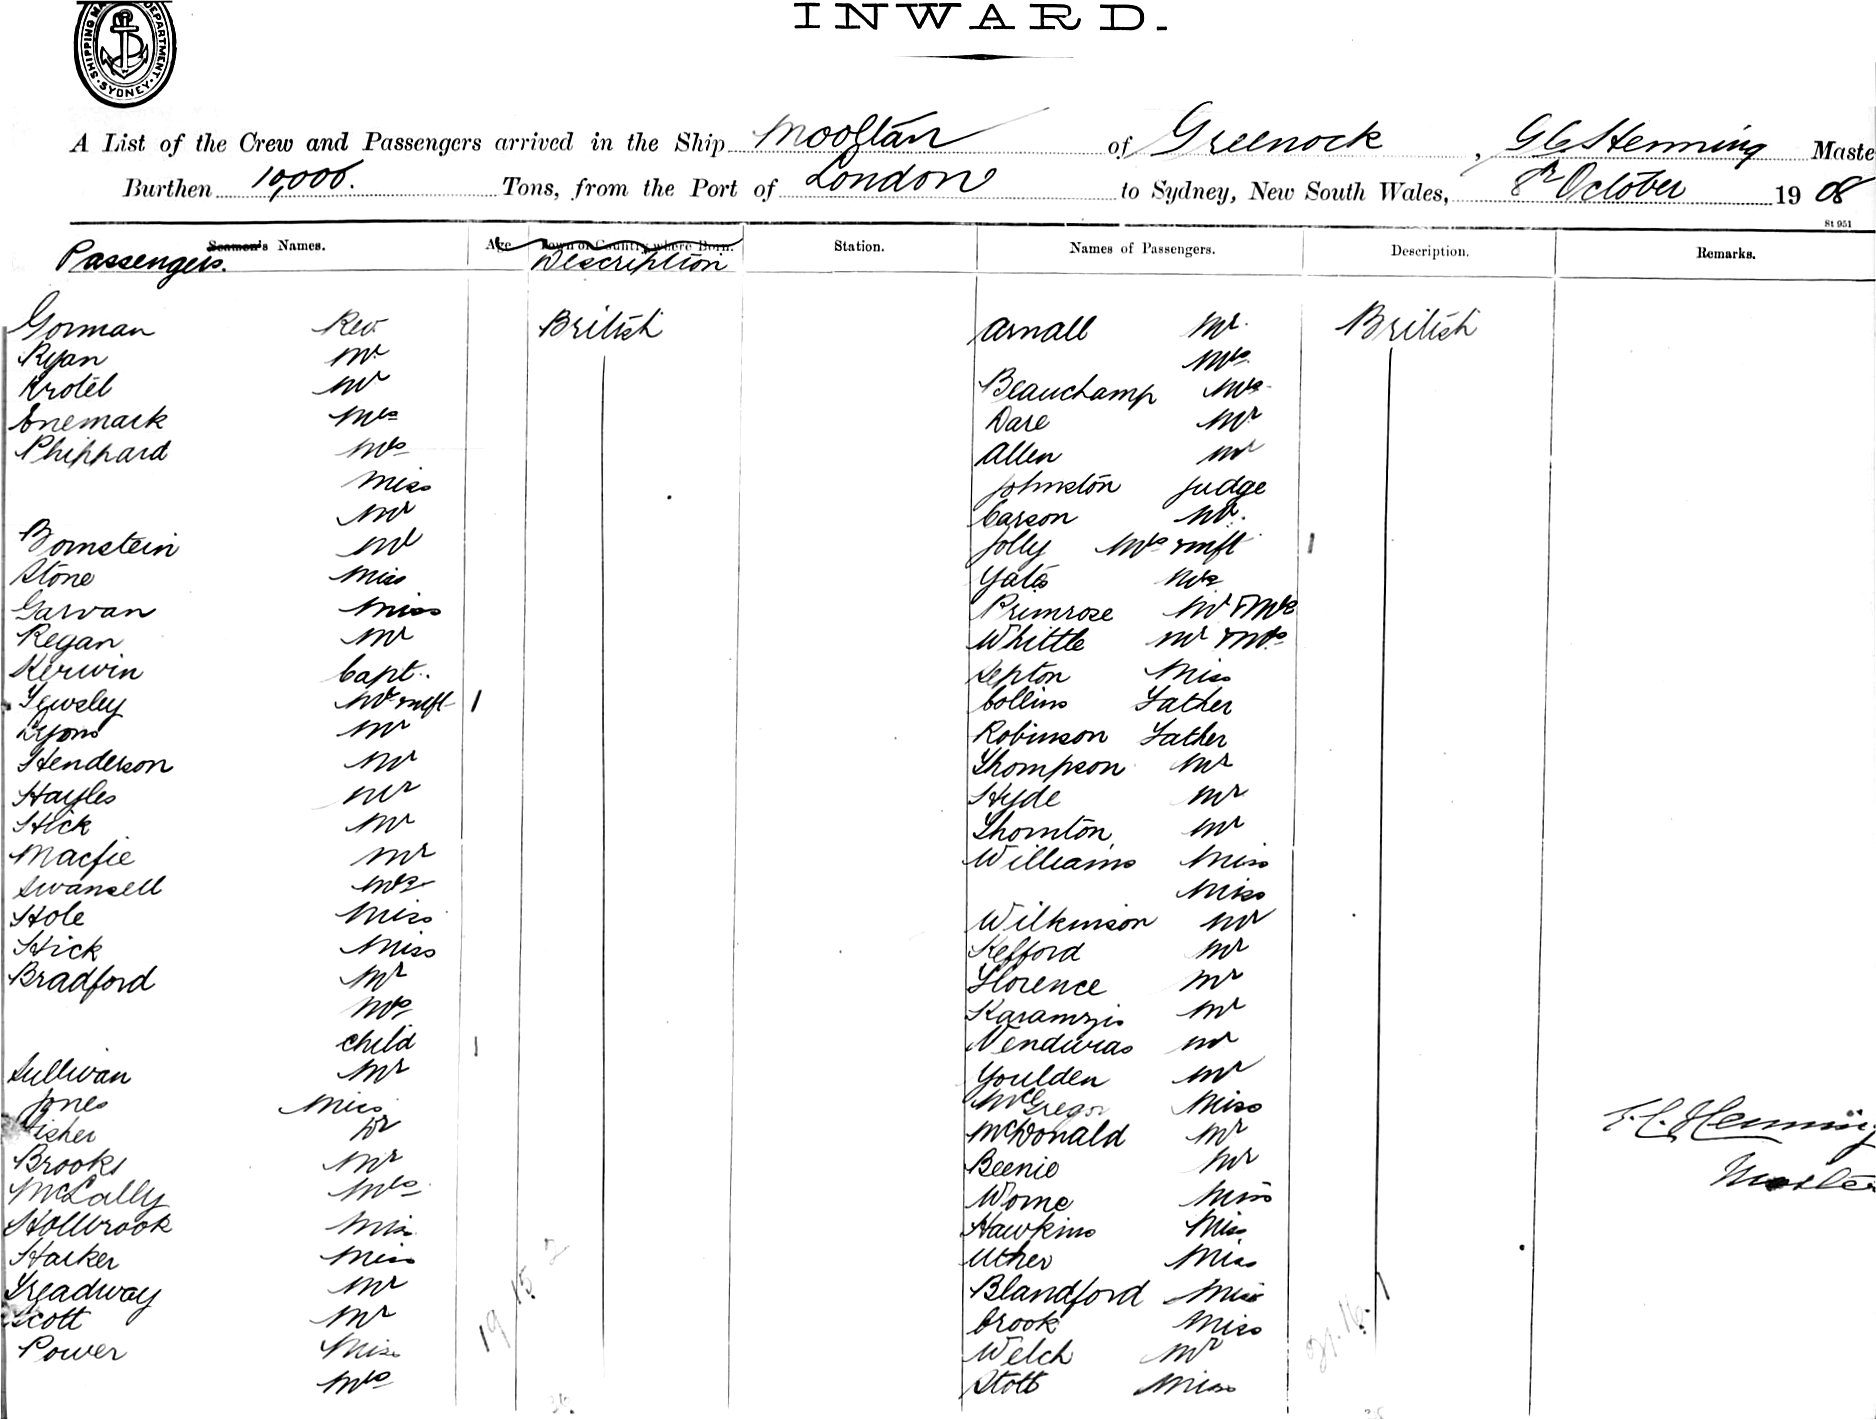 INWARD.
SHIPPING MA DEPARTMENT SYDNEY
A List of the Crew and Passengers arrived in the Ship Mooltan of Greenock, G C Henning Maste
Burthen 10,000. Tons, from the Port of London to Sydney, New South Wales, 8th October 1908
St 951
Seamen's Names. Age Town or Country where Born. Station. Names of Passengers. Description. Remarks.
Passengers. Description
Gorman Rev British
Ryan Mr
Krotel Mr
Enemark Mrs
Phippard Mrs
Miss
Mr
Bornstein Mr
Stone Miss
Garvan Miss
Regan Mr
Kerwin Capt.
Tewsley Mr & inft 1
Lyons Mr
Henderson Mr
Hayles Mr
Hick Mr
Macfie Mr
Swansell Mrs
Hole Miss
Hick Miss
Bradford Mr
Mrs
child 1
Sullivan Mr
Jones Miss
Fisher Dr
Brooks Mr
McLally Mrs
Holbrook Miss
Harker Miss
Treadway Mr
Scott Mr
Power Miss
Mrs
19 15 2
Arnall Mr. British
Mrs
Beauchamp Mrs
Dare Mr
Allen Mr
Johnston Judge
Carson Mr.
Jolly Mrs & inft 1
Yates Mrs
Primrose Mr & Mrs
Whittle Mr & Mrs
Septon Miss
Collins Father
Robinson Father
Thompson Mr
Hyde Mr
Thornton Mr
Williams Miss
Miss
Wilkinson Mr
Kefford Mr
Florence Mr
Karamzis Mr
Venduras Mr
Youlden Mr
McGregor Miss
McDonald Mr
Beenie Mr
Worne Miss
Hawkins Miss
Uther Miss
Blandford Miss
Crook Miss
Welch Mr
Stott Miss
21. 16. 1
G. C. Henning
Master